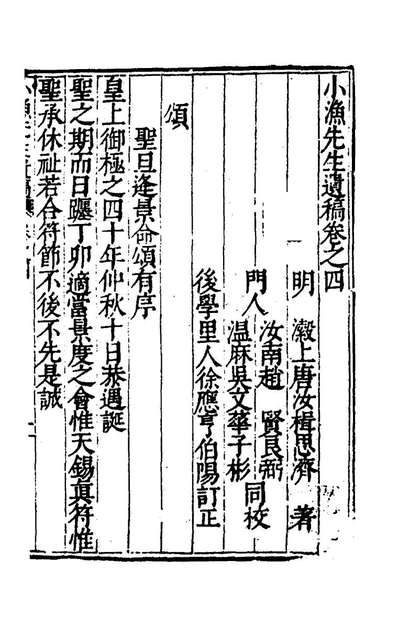 小漁先生遺稿卷之四
明 瀔上唐汝楫思濟 著
門人 汝南趙 賢良弼
温麻吳文華子彬 同校
後學里人徐應亨伯陽訂正
頌
聖旦逢景命頌有序
皇上御極之四十年仲秋十日恭遇誕
聖之期而日躔丁卯適當景度之會惟天錫眞符惟
聖承休祉若合符節不後不先是誠